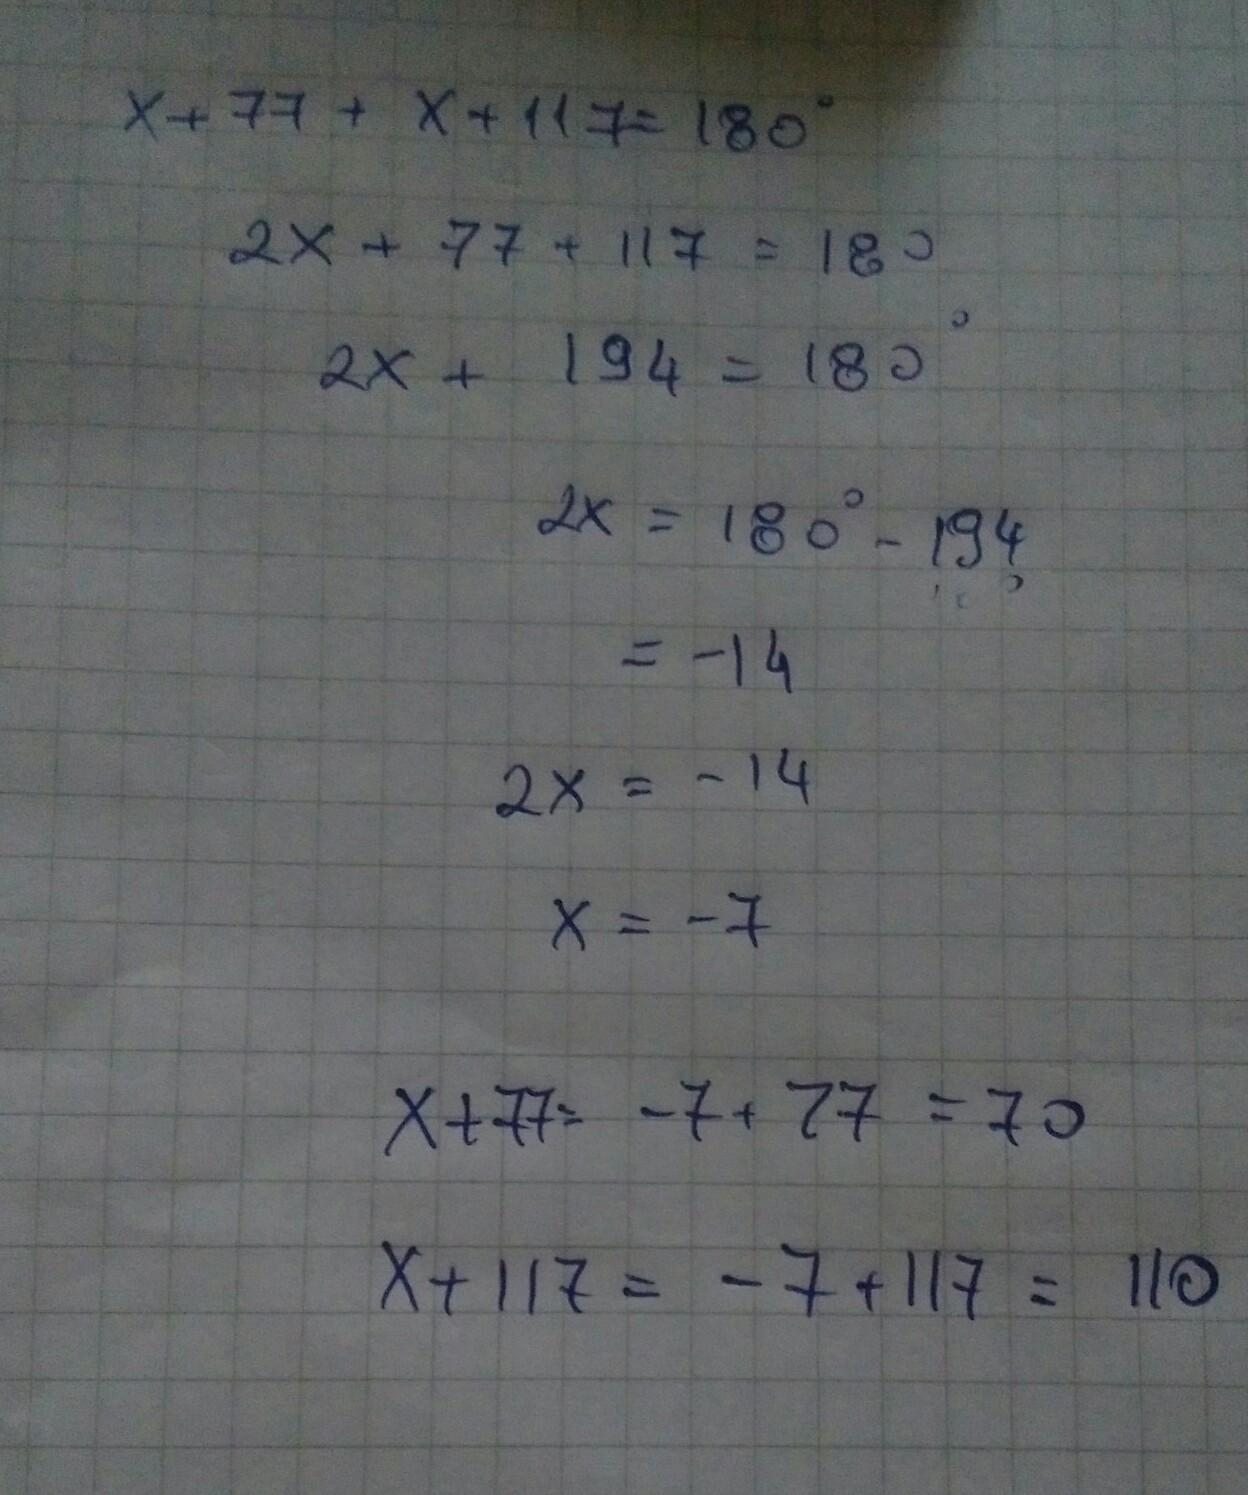 x+77 + x+117=180°
2x + 77 + 117 = 180
2x + 194 = 180°
2x = 180° - 194
= -14
2x = -14
x = -7
x+77= -7+ 77 =70
x+117 = -7+117 = 110